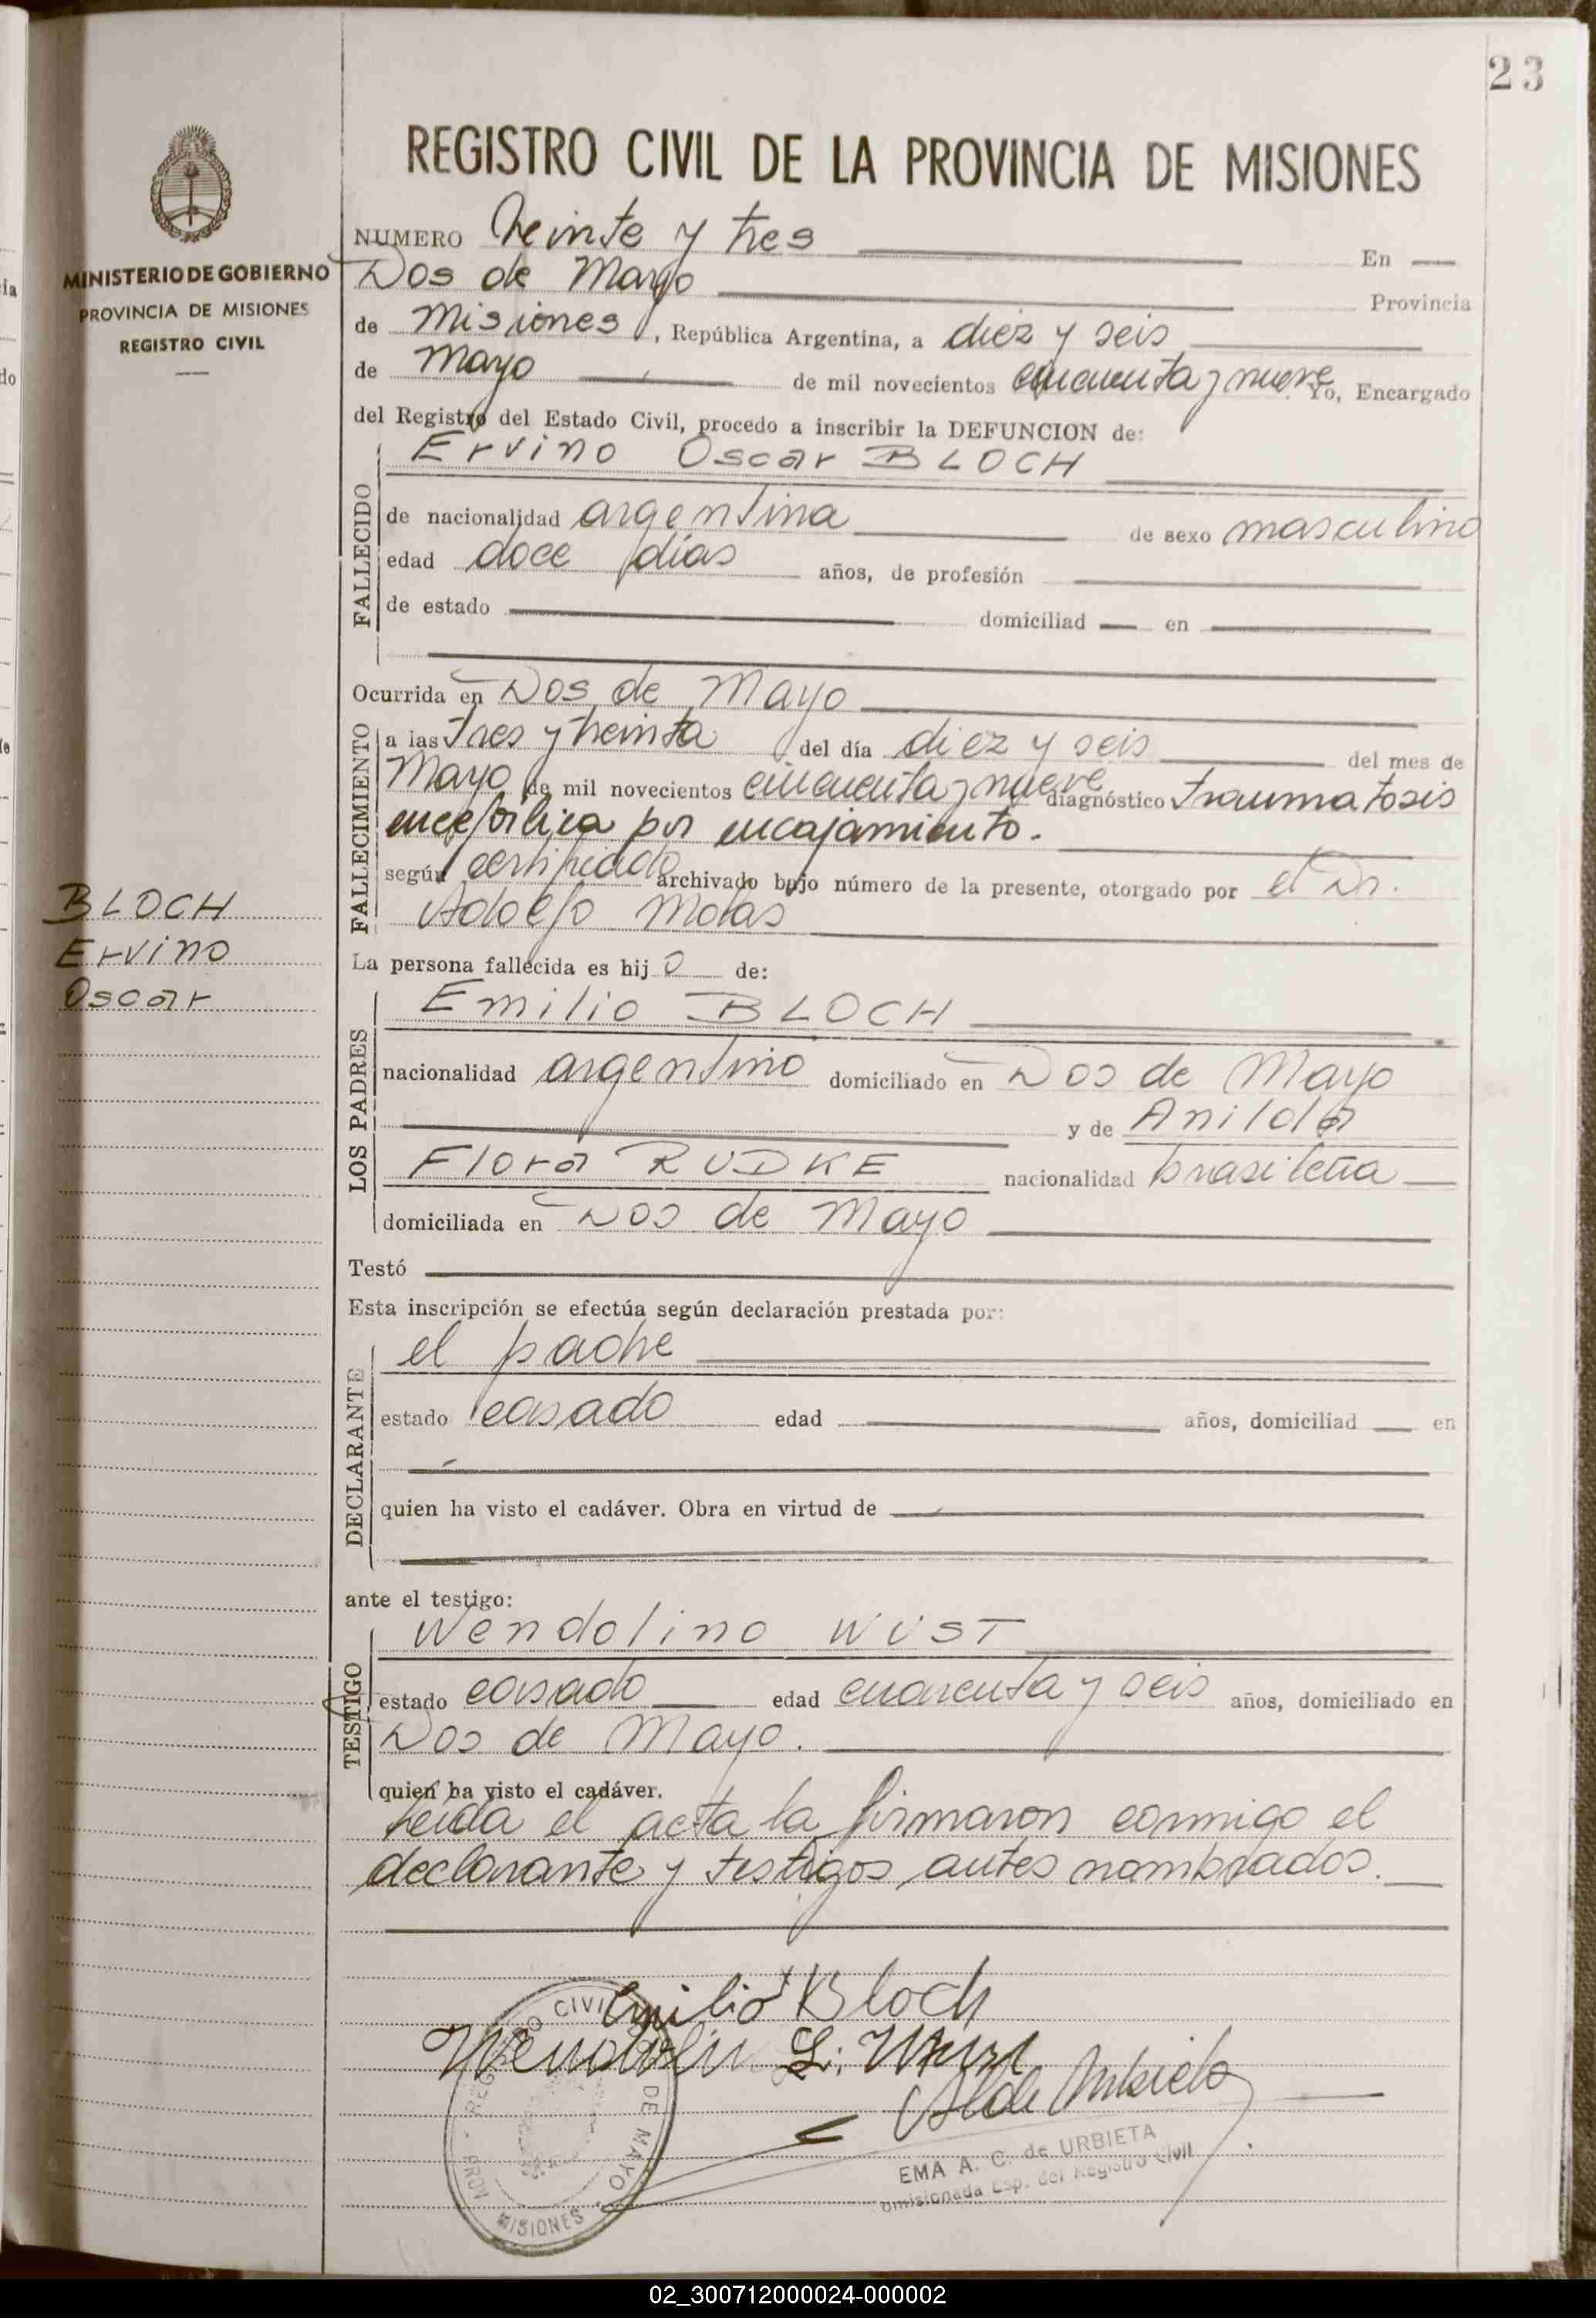 23
REGISTRO CIVIL DE LA PROVINCIA DE MISIONES
MINISTERIO DE GOBIERNO
PROVINCIA DE MISIONES
REGISTRO CIVIL
NUMERO Veinte y tres En
Dos de Mayo Provincia
de Misiones, República Argentina, a diez y seis
de Mayo de mil novecientos cincuenta y nueve Yo, Encargado
del Registro del Estado Civil, procedo a inscribir la DEFUNCION de:
Ervino Oscar BLOCH
FALLECIDO
de nacionalidad argentina de sexo masculino
edad doce días años, de profesión
de estado domiciliad en
Ocurrida en Dos de Mayo
FALLECIMIENTO
a las tres y treinta del día diez y seis del mes de
Mayo de mil novecientos cincuenta y nueve diagnóstico traumatosis
encefálica por encajamiento.
según certificado archivado bajo número de la presente, otorgado por el Dr.
Adolfo Molas
BLOCH
Ervino
Oscar
La persona fallecida es hijo de:
LOS PADRES
Emilio BLOCH
nacionalidad argentino domiciliado en Dos de Mayo
y de Anilda
Flora RUDKE nacionalidad brasileña
domiciliada en Dos de Mayo
Testó
Esta inscripción se efectúa según declaración prestada por:
DECLARANTE
el padre
estado casado edad años, domiciliad en
quien ha visto el cadáver. Obra en virtud de
ante el testigo:
TESTIGO
Wendolino WUST
estado casado edad cuarenta y seis años, domiciliado en
Dos de Mayo.
quien ha visto el cadáver.
Leida el acta la firmaron conmigo el
declarante y testigos antes nombrados.
Emilio Bloch
Wendolin L. Wust
A de Urbieta
REGISTRO CIVIL DOS DE MAYO
PROV. MISIONES
EMA A. C. de URBIETA
omisionada Esp. del Registro Civil
02_300712000024-000002